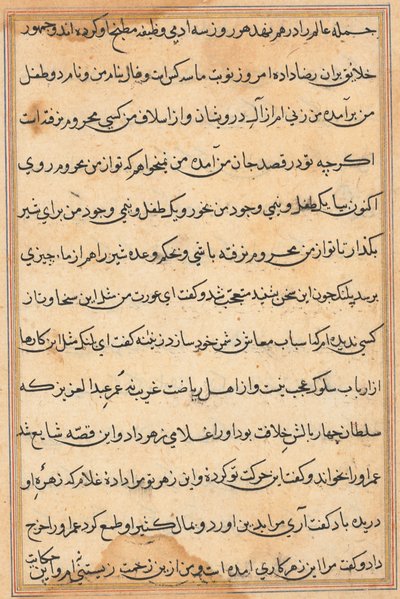 جمله عالم را در هر هفته هر روز سه ادمی وظیفه مطبخ او کرده اند و جمهور
خلایق بران رضا داده امروز نوبت ماسه کس است و فال بنام من و نام دو طفل
من برآمده من زنی ام از آل درویشان و از اسلاف من کسی محروم نرفته است
اکرچه تو در قصد جان من آمده من نمیخواهم که تو از من محروم روی
اکنون بیا یک طفل و نیمی وجود من بخور و یک طفل و نیمی وجود من برای شیر
بگذار تا تو از من محروم نرفته باشی و بحکم وعده شیر را هم از ما چیزی
برسد پلنک چون این سخن بشنید متعجب شد و کفت ای عورت من مثل این سخاوت از
کسی ندیده ام که اسباب معاش دشمن خود سازد زن کفت ای پلنک مثل این کارها
از ارباب سلوک عجب نیست و از اهل ریاضت غریب نه عمر عبد العزیز که
سلطان چهار بالش خلافت بود او را غلامی زهر داد و این قصه شایع شد
عمر او را بخواند و کفت این حرکت تو کرده و این زهر تو مرا داده غلام که زهره او
دریده باد کفت آری مرا بدین اورد و بمال کثیر و طمع کرد عمر او را خرج
داد و کفت مرا این زهر کاری امده است و من ازین زحمت زیستنی نه ام و این حکایت